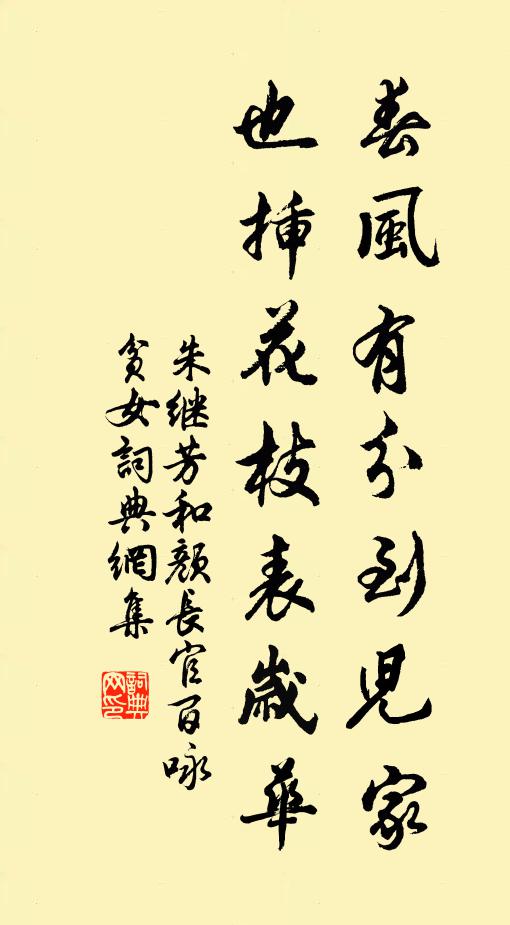 春風有分到兒家
也揷花枝表歲華
朱继芳和顏長官百咏
貧女詞典網集
詞典網印